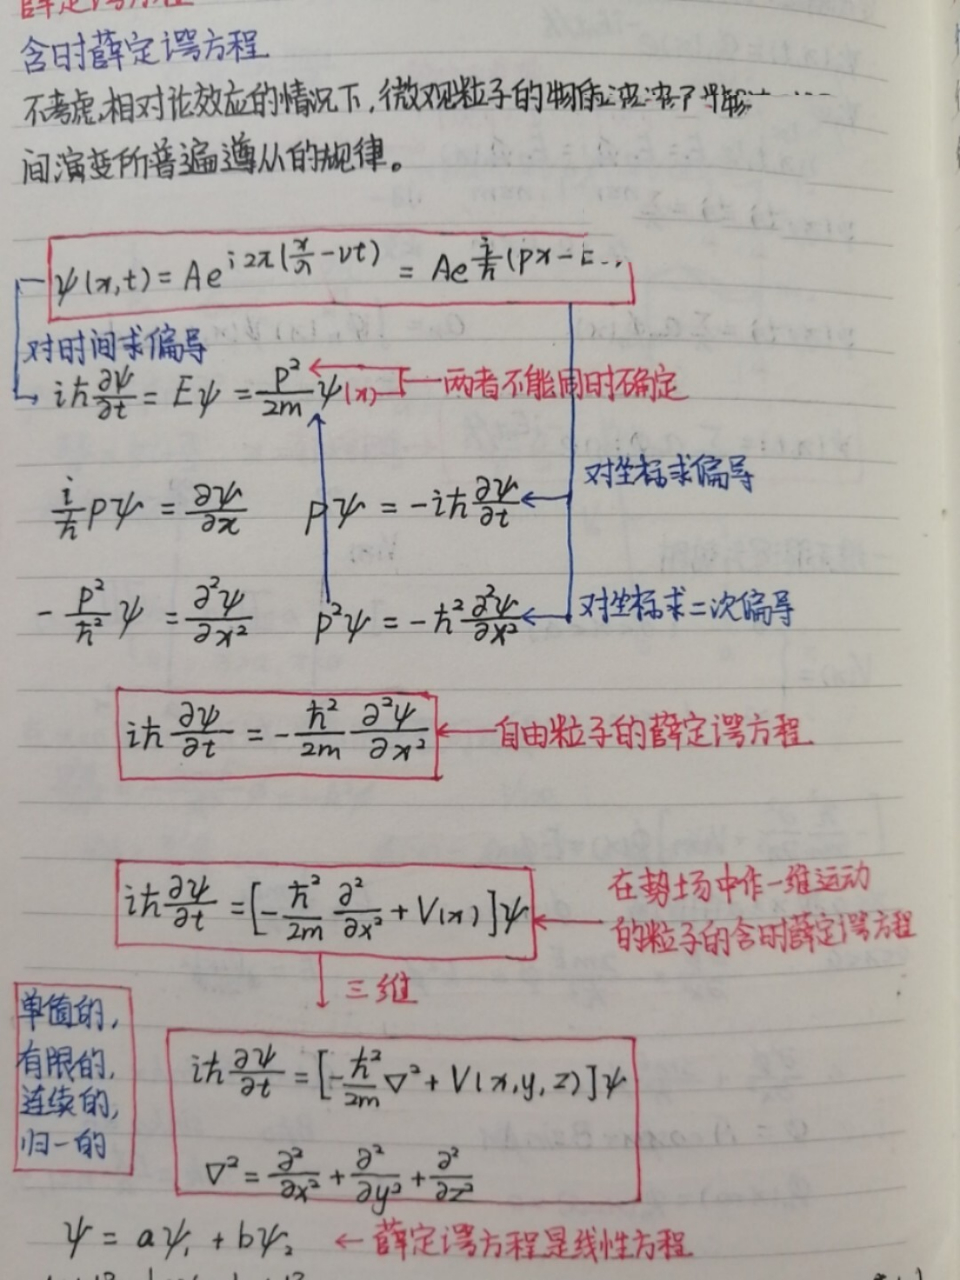 薛定谔方程
含时薛定谔方程
不考虑相对论效应的情况下,微观粒子的物
间演变所普遍遵从的规律。
ψ(x,t) = Ae^{i2π(x/λ - νt)} = Ae^{i/ħ(px - E
对时间求偏导
iħ ∂ψ/∂t = Eψ = p²/2m ψ(x) ← 两者不能同时确定
对坐标求偏导
i/ħ pψ = ∂ψ/∂x pψ = -iħ ∂ψ/∂t
-p²/ħ² ψ = ∂²ψ/∂x² p²ψ = -ħ² ∂²ψ/∂x² 对坐标求二次偏导
iħ ∂ψ/∂t = -ħ²/2m ∂²ψ/∂x² ← 自由粒子的薛定谔方程
iħ ∂ψ/∂t = [-ħ²/2m ∂²/∂x² + V(x)]ψ
在势场中作一维运动
的粒子的含时薛定谔方程
↓ 三维
单值的,
有限的,
连续的,
归一的
iħ ∂ψ/∂t = [-ħ²/2m ∇² + V(x,y,z)]ψ
∇² = ∂²/∂x² + ∂²/∂y² + ∂²/∂z²
ψ = aψ₁ + bψ₂ ← 薛定谔方程是线性方程